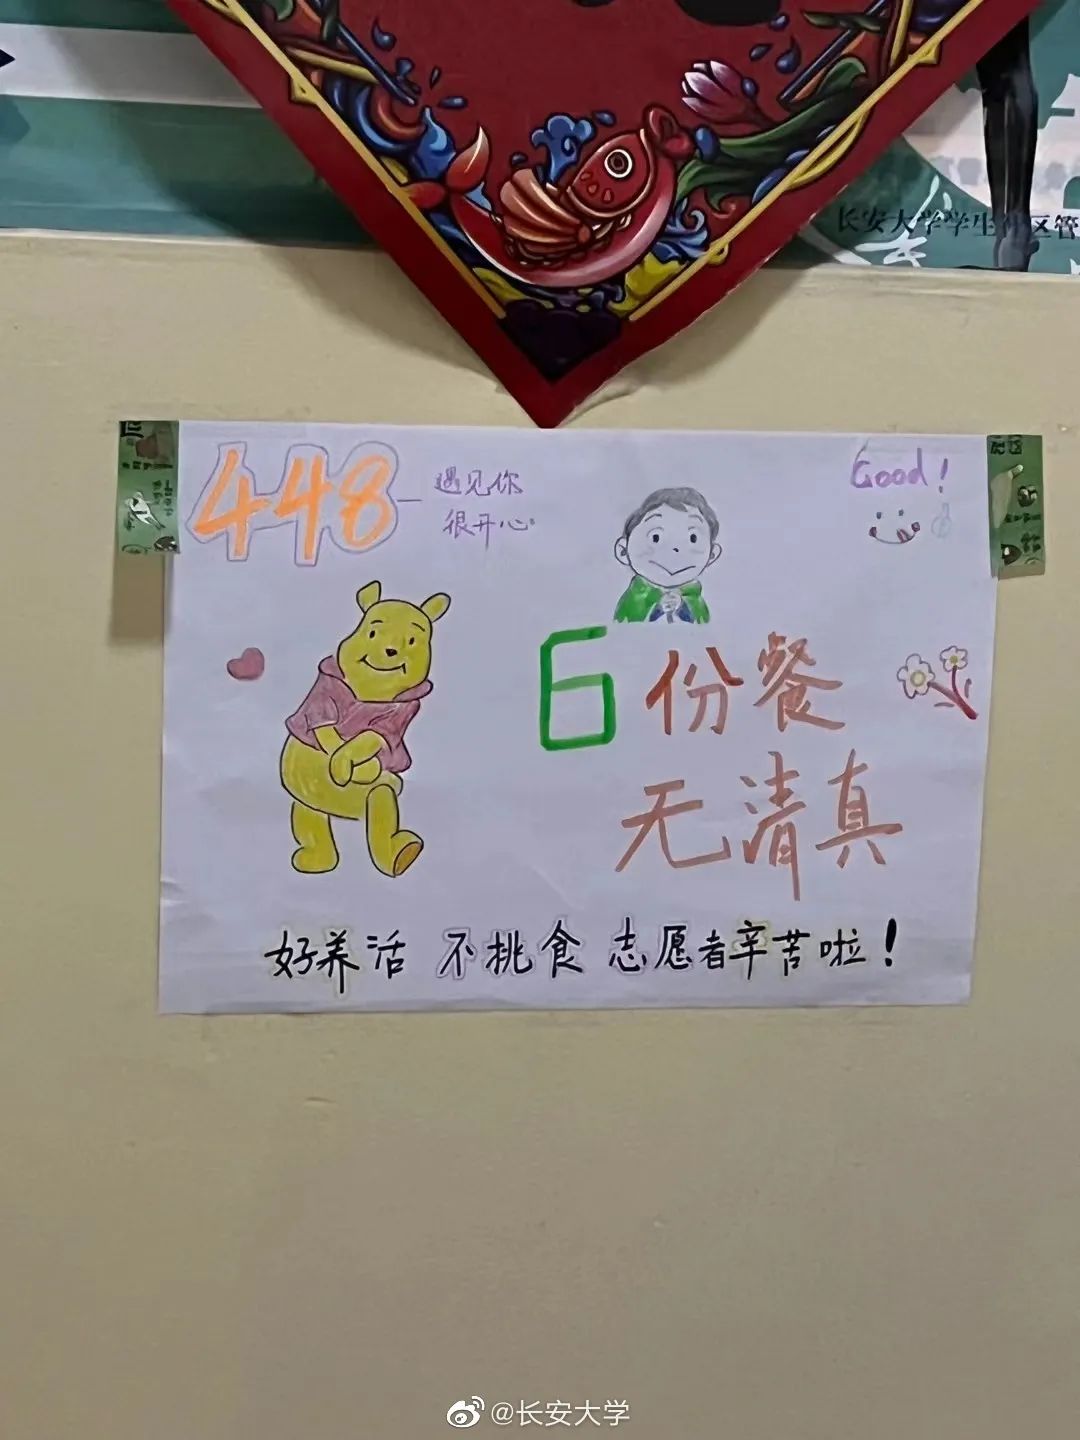 长安大学学生社区管
448
遇见你
很开心
Good!
6份餐
无清真
好养活 不挑食 志愿者辛苦啦!
@长安大学